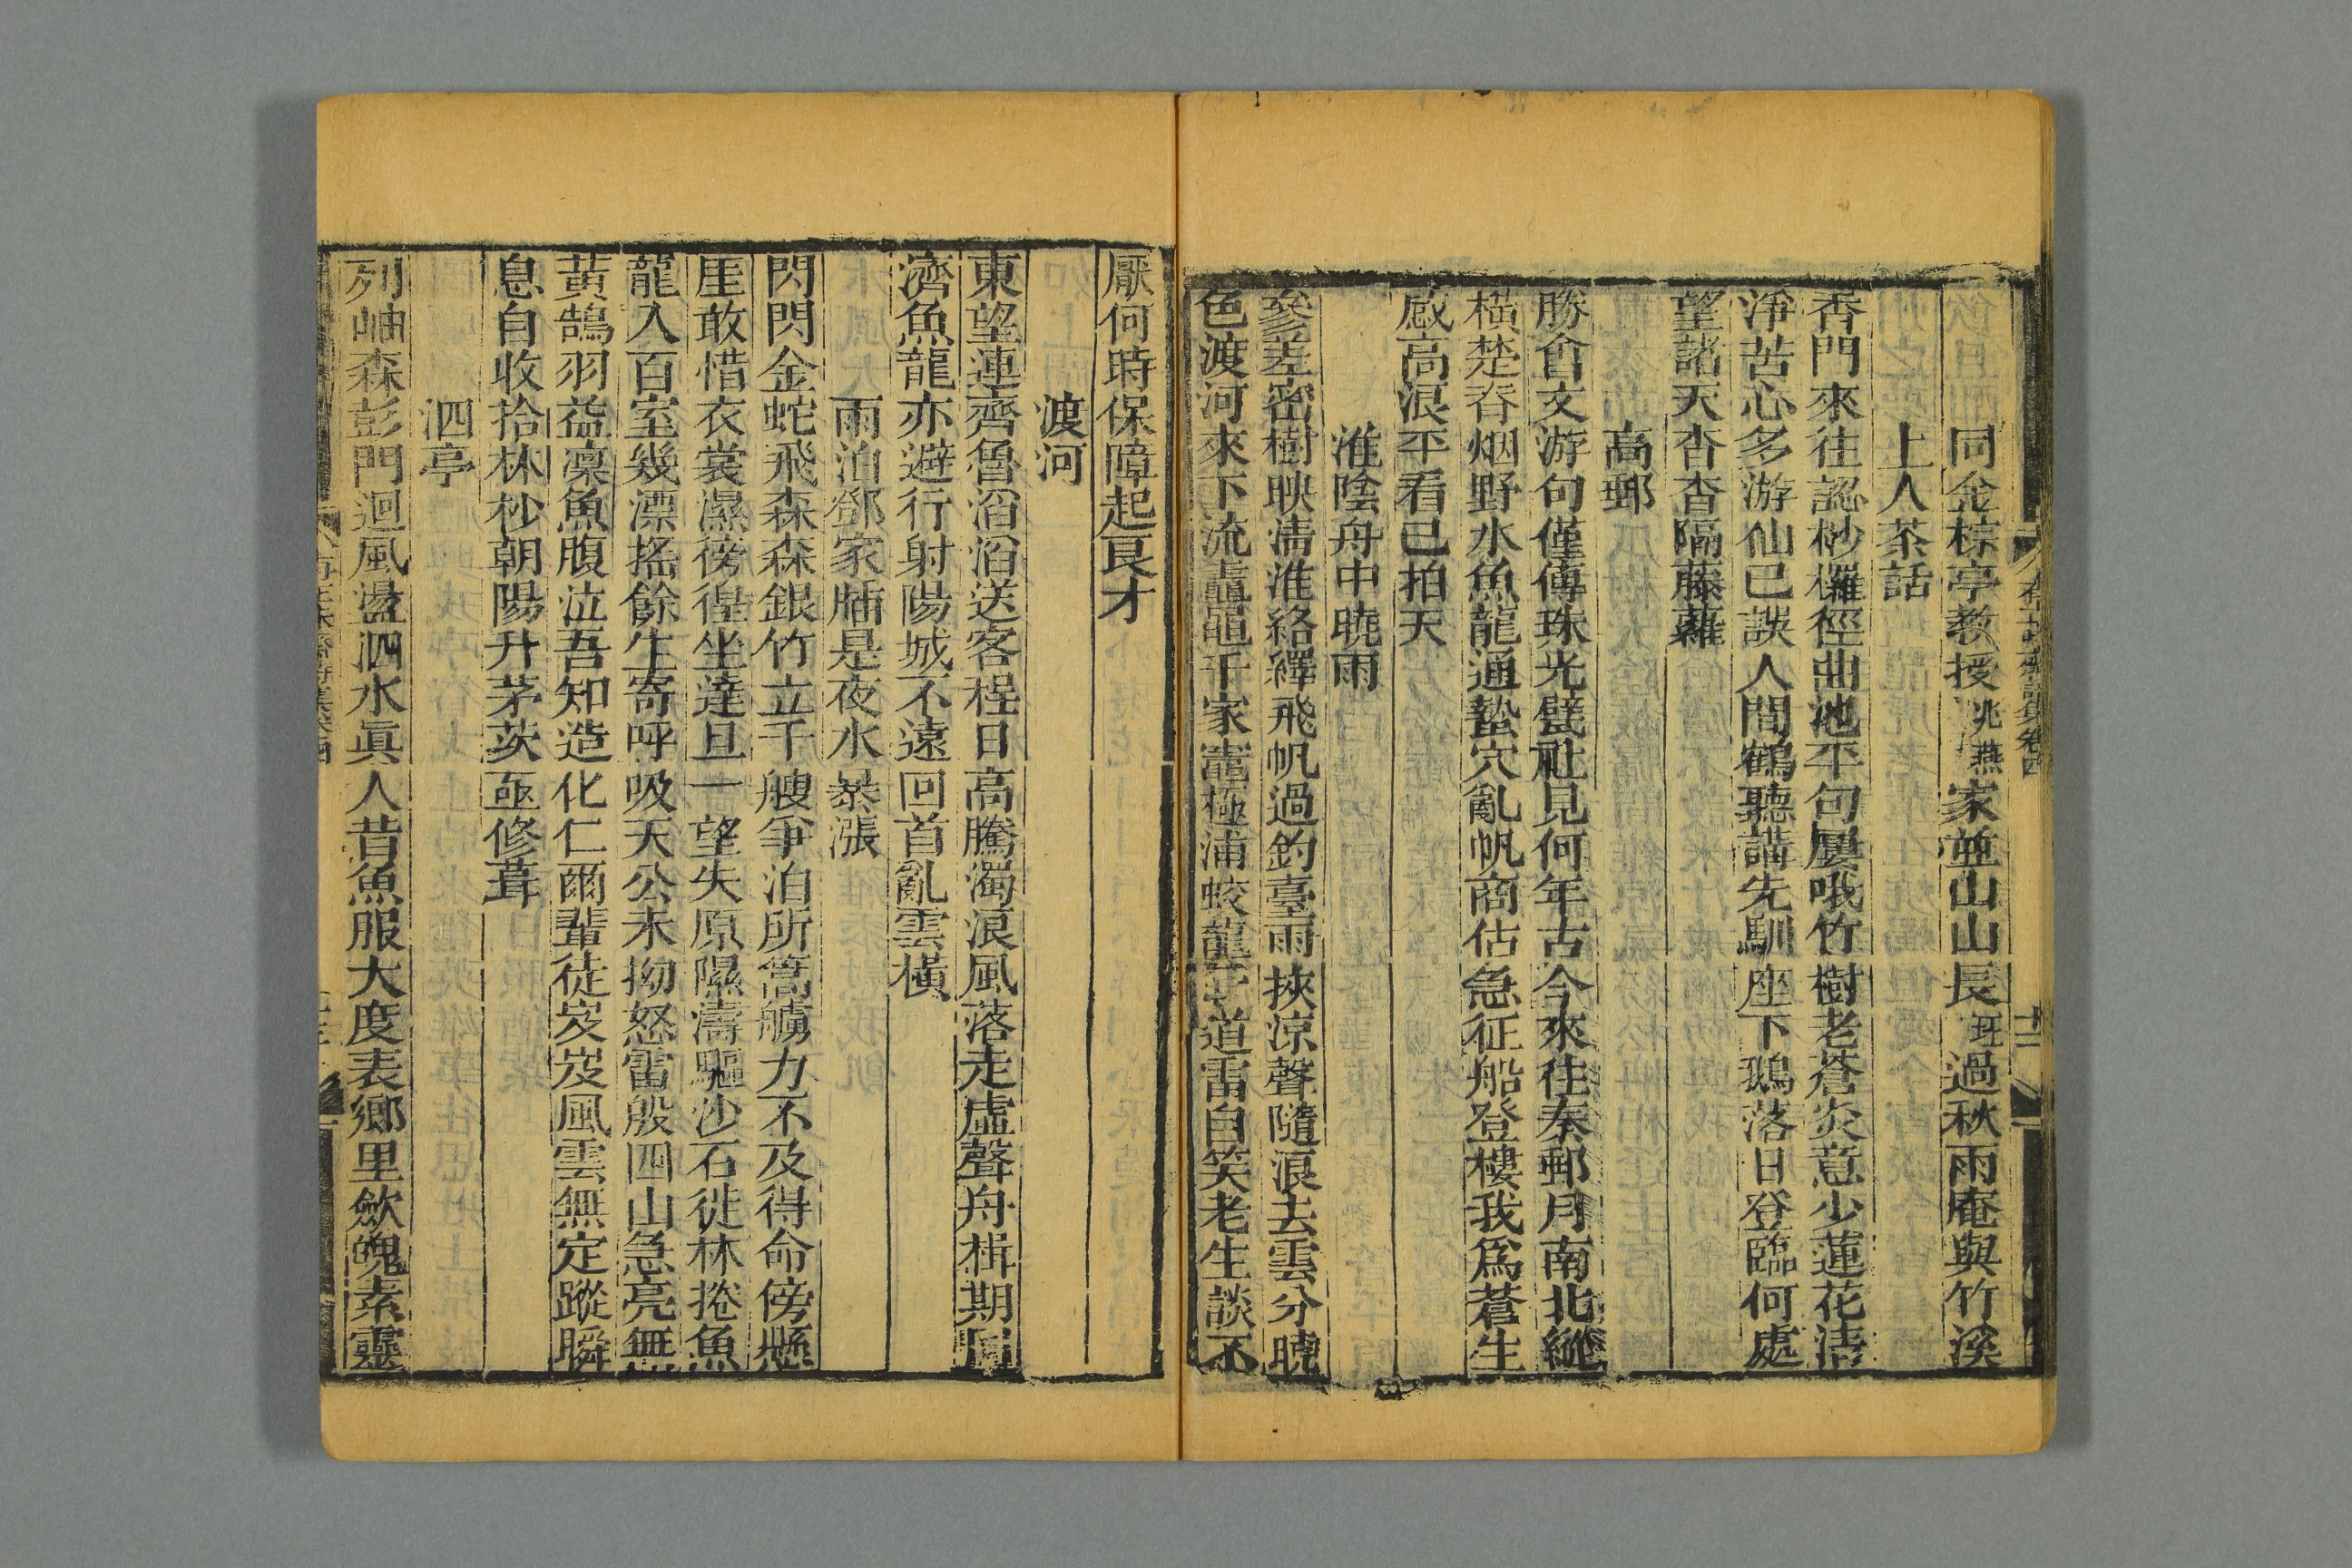 同金棕亭教授兆燕家並山山長珏過秋雨庵與竹溪
上人茶話
香門來往認桫欏徑曲池平句屢哦竹樹老蒼炎意少蓮花清
淨苦心多游仙已誤人間鶴聽講先馴座下鵝落日登臨何處
望諸天杳杳隔藤蘿
高郵
勝會文游句僅傳珠光甓社見何年古今來往秦郵月南北縱
橫楚舂烟野水魚龍通蟄穴亂帆商估急征船登樓我為蒼生
感高浪平看已拍天
淮陰舟中曉雨
參差密樹映淸淮絡繹飛帆過釣臺雨挾凉聲隨浪去雲分曉
色渡河來下流黿鼉千家竈極浦蛟龍道雷自笑老生談不
厭何時保障起良才
渡河
東望連齊魯滔滔送客程日高騰濁浪風落走虛聲舟楫期
濟魚龍亦避行射陽城不遠回首亂雲橫
雨泊鄧家牐是夜水暴漲
閃閃金蛇飛森森銀竹立千艘爭泊所篙艣力不及得命傍懸
厓敢惜衣裳濕徬徨坐達旦一望失原隰濤驅沙石徙林捲魚
龍入百室幾漂搖餘生寄呼吸天公未拗怒雷殷四山急亮無
黃鵠羽益凜魚腹泣吾知造化仁爾輩徒岌岌風雲無定蹤瞬
息自收拾林杪朝陽升茅茨亟修葺
泗亭
列岫森彭門迴風盪泗水眞人昔魚服大度表鄉里歛魄素靈